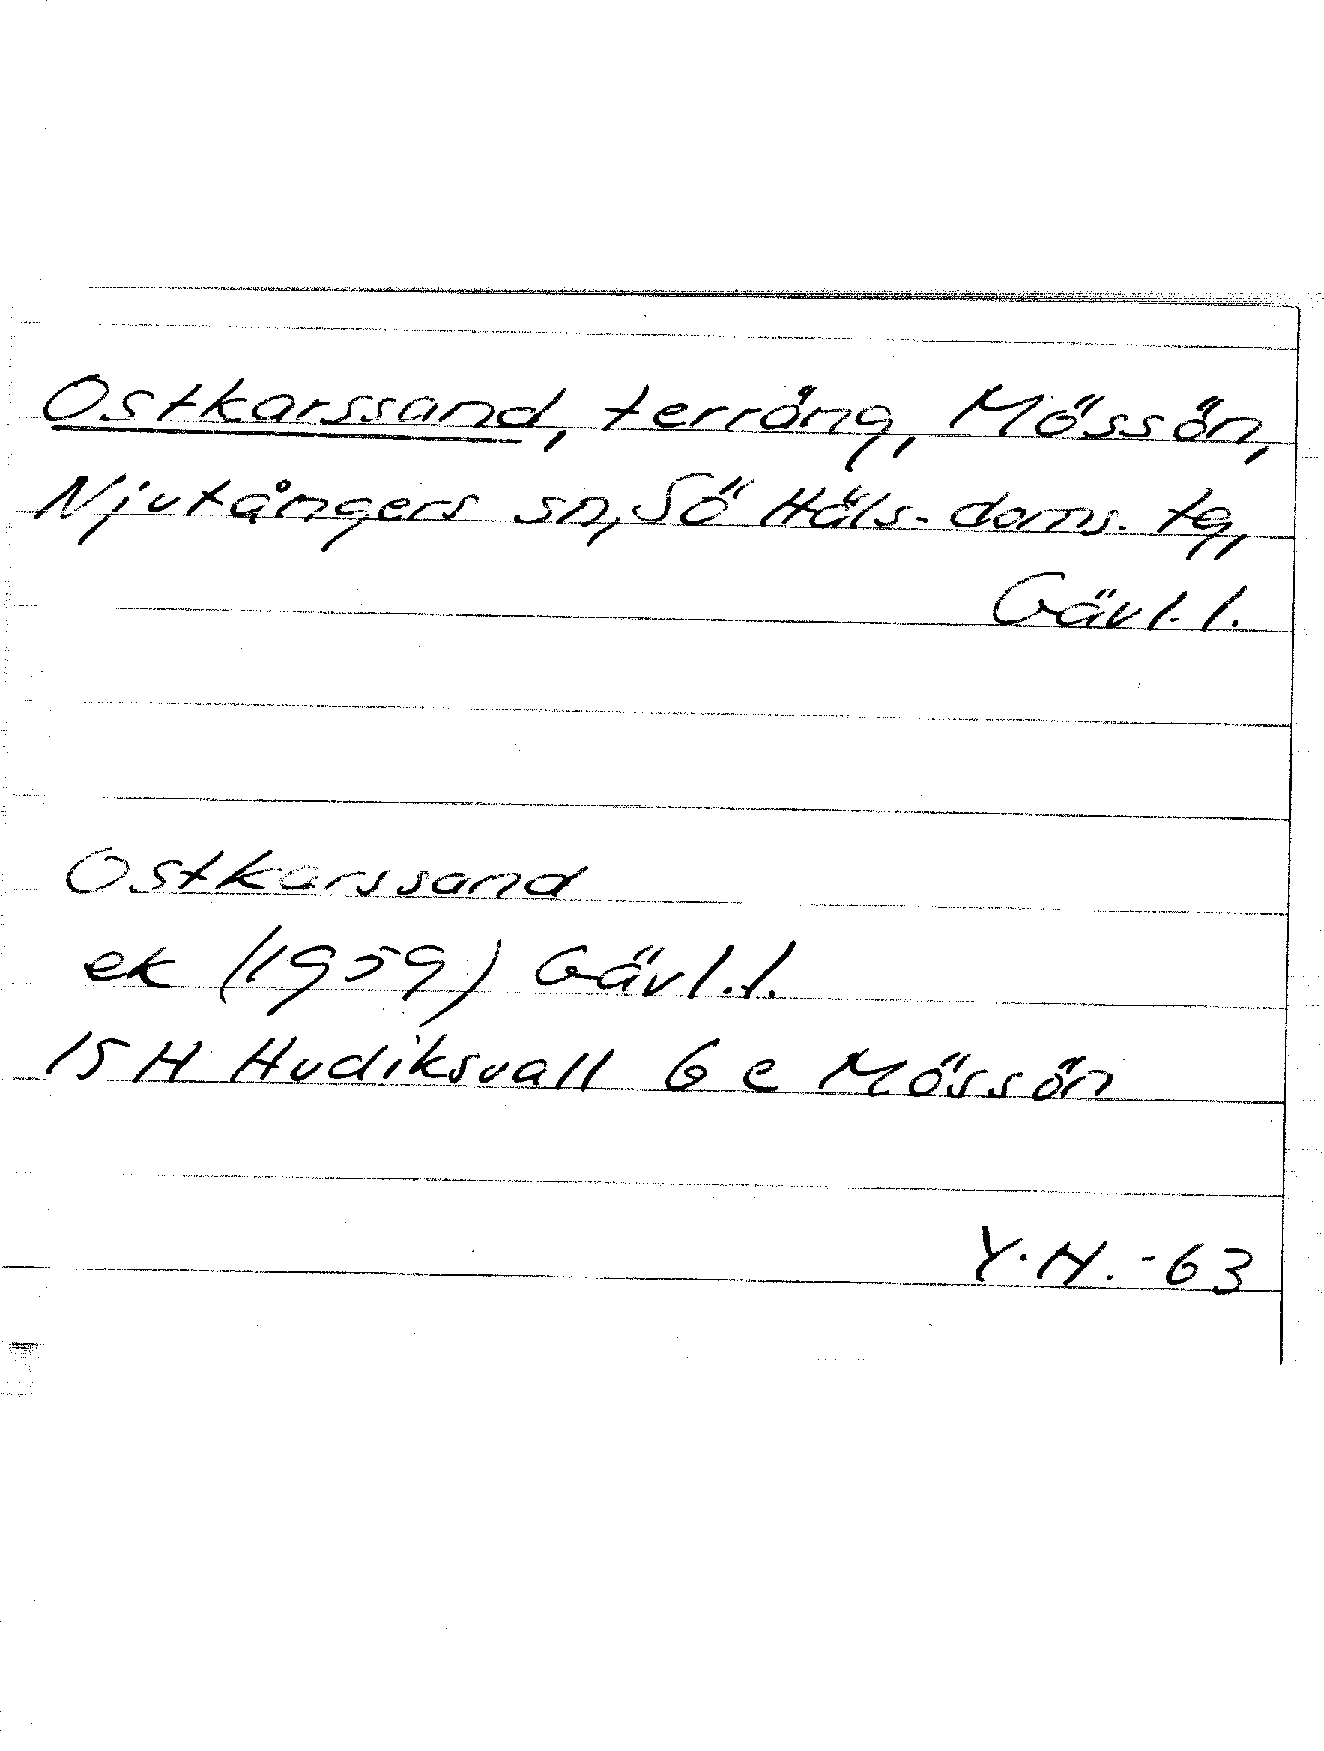 Ostkarssand, terräng, Mössön,
Njutångers sn, Sö Häls. doms. tg,
Gävl. l.
Ostkarssand
ek (1959) Gävl. l.
15 H Hudiksvall 6 e Mössön
Y. H. -63